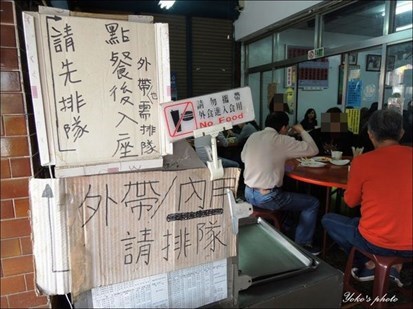 請先排隊
點餐後入座
外帶也需排隊
請勿攜帶
外食進入食用
No Food
外帶/內用
請排隊
Yoko's photo